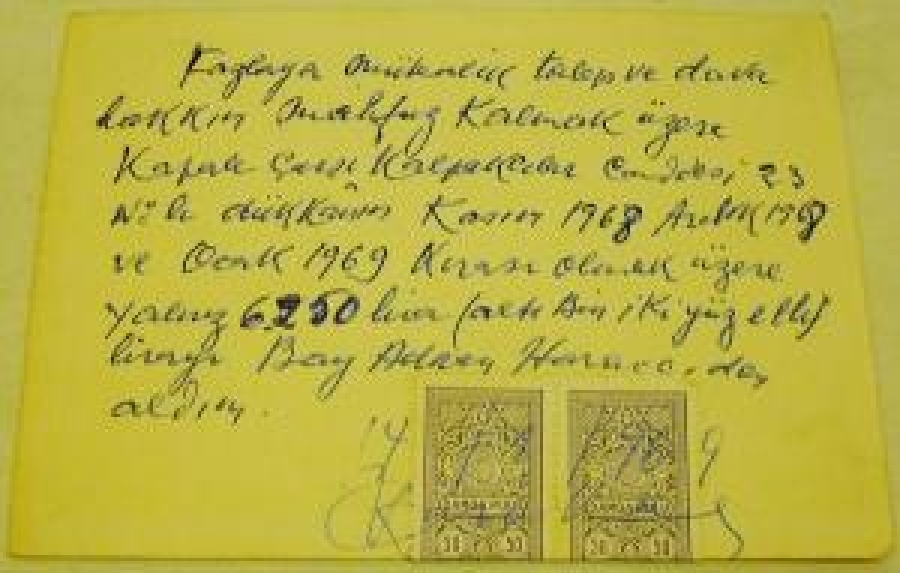 Fazlaya müteallik talep ve dava
hakkım mahfuz kalmak üzere
Kapalı Çarşı Kalpakcılar Caddesi 23
No lu dükkânın Kasım 1968 Aralık 1968
ve Ocak 1969 Kirası olarak üzere
yalnız 6250 lira (altı bin iki yüz elli)
lirayı Bay den
aldım.
14 9
50 50
50 50